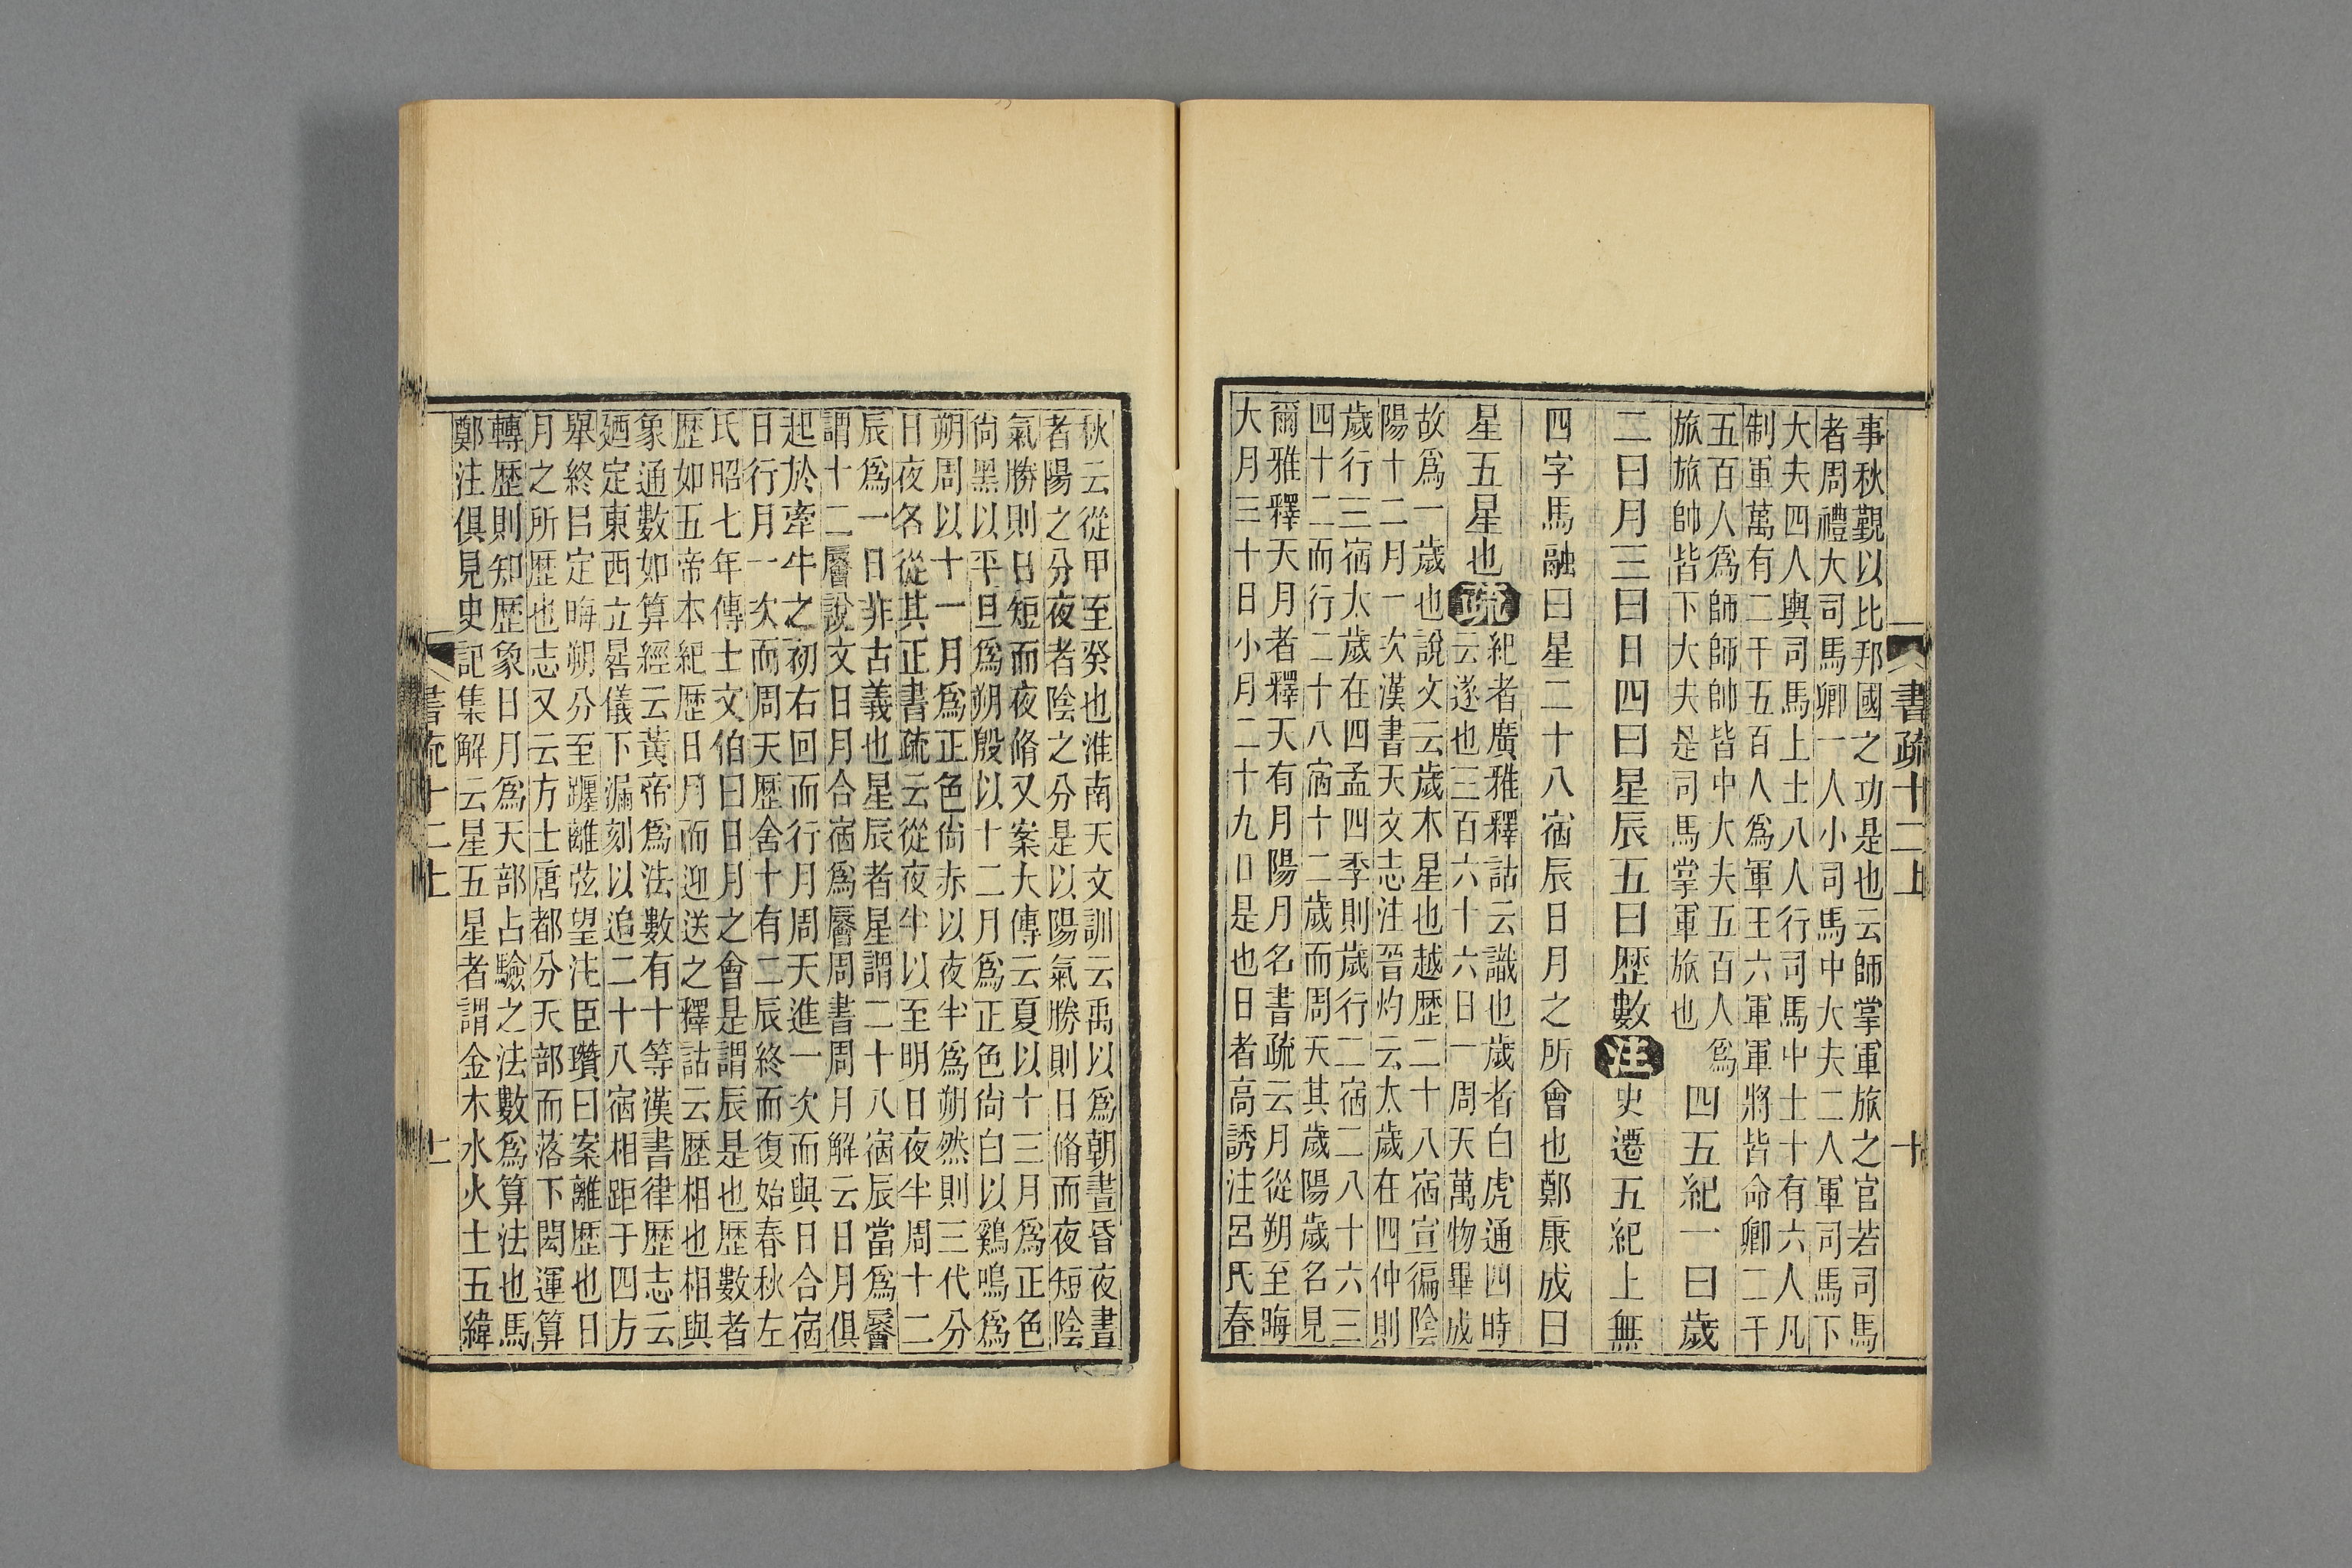 書疏十二上
十
事秋覲以比邦國之功是也云師掌軍旅之官若司馬
者周禮大司馬卿一人小司馬中大夫二人軍司馬下
大夫四人輿司馬上士八人行司馬中士十有六人凡
制軍萬有二千五百人爲軍王六軍軍將皆命卿二千
五百人爲師師帥皆中大夫五百人爲
旅旅帥皆下大夫是司馬掌軍旅也
四五紀一曰歲
二曰月三曰日四曰星辰五曰歷數注史遷五紀上無
四字馬融曰星二十八宿辰日月之所會也鄭康成曰
星五星也疏
紀者廣雅釋詁云識也歲者白虎通四時
云遂也三百六十六日一周天萬物畢成
故爲一歲也說文云歲木星也越歷二十八宿宣徧陰
陽十二月一次漢書天文志注晉灼云太歲在四仲則
歲行三宿太歲在四孟四季則歲行二宿二八十六三
四十二而行二十八宿十二歲而周天其歲陽歲名見
爾雅釋天月者釋天有月陽月名書疏云月從朔至晦
大月三十日小月二十九日是也日者高誘注呂氏春
秋云從甲至癸也淮南天文訓云禹以爲朝晝昏夜晝
者陽之分夜者陰之分是以陽氣勝則日脩而夜短陰
氣勝則日短而夜脩又案大傳云夏以十三月爲正色
尙黑以平旦爲朔殷以十二月爲正色尙白以鷄鳴爲
朔周以十一月爲正色尙赤以夜半爲朔然則三代分
日夜各從其正書疏云從夜半以至明日夜半周十二
辰爲一日非古義也星辰者星謂二十八宿辰當爲㫳
謂十二㫳說文日月合宿爲㫳周書周月解云日月俱
起於牽牛之初右回而行月周天進一次而與日合宿
日行月一次而周天歷舍十有二辰終而復始春秋左
氏昭七年傳士文伯曰日月之會是謂辰是也歷數者
歷如五帝本紀歷日月而迎送之釋詁云歷相也相與
象通數如算經云黃帝爲法數有十等漢書律歷志云
廼定東西立晷儀下漏刻以追二十八宿相距于四方
舉終㠯定晦朔分至躔離弦望注臣瓚曰案離歷也日
月之所歷也志又云方士唐都分天部而落下閎運算
轉歷則知歷象日月爲天部占驗之法數爲算法也馬
鄭注俱見史記集解云星五星者謂金木水火土五緯
書疏十二上